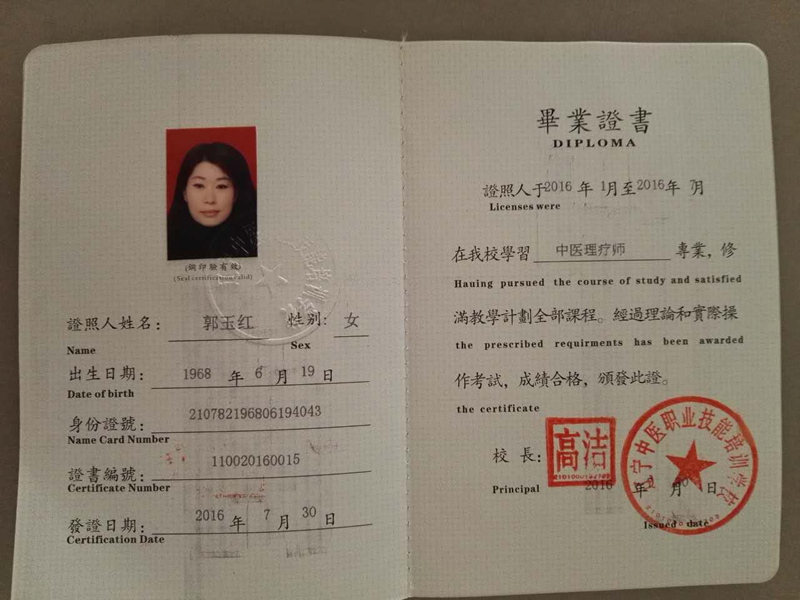 (鋼印驗有效)
(Seal certification valid)
證照人姓名： 郭玉红 性别: 女
Name Sex
出生日期： 1968 年 6 月 19 日
Date of birth
身份證號： 210782196806194043
Name Card Number
證書編號： 110020160015
Certificate Number
發證日期： 2016 年 7 月 30 日
Certification Date
畢業證書
DIPLOMA
證照人于2016 年 1月至2016年 7月
Licenses were
在我校學習 中医理疗师 專業，修
Hauing pursued the course of study and satisfied
滿教學計劃全部課程。經過理論和實際操
the prescribed requirments has been awarded
作考試，成績合格，頒發此證。
the certificate
校 長： 高洁
Principal 2016 年 月 日
Issued date
宁中医职业技能培训学校